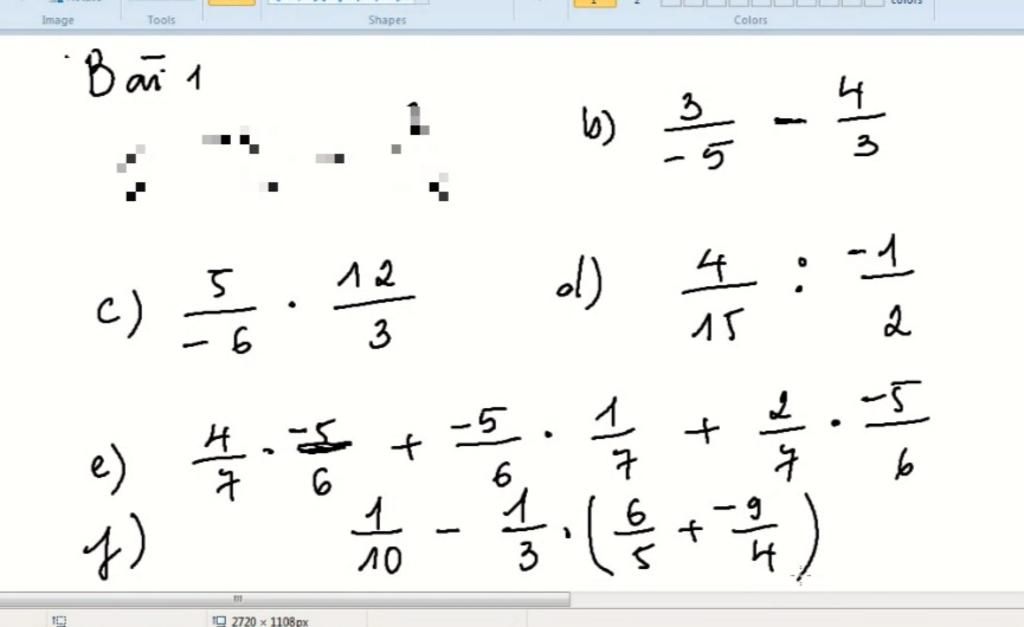 Image Tools Shapes 1 2 Colors
Bài 1
b) 3/-5 - 4/3
c) 5/-6 . 12/3 d) 4/15 : -1/2
e) 4/7 . -5/6 + -5/6 . 1/7 + 2/7 . -5/6
f) 1/10 - 1/3 . (6/5 + -9/4)
2720 × 1108px